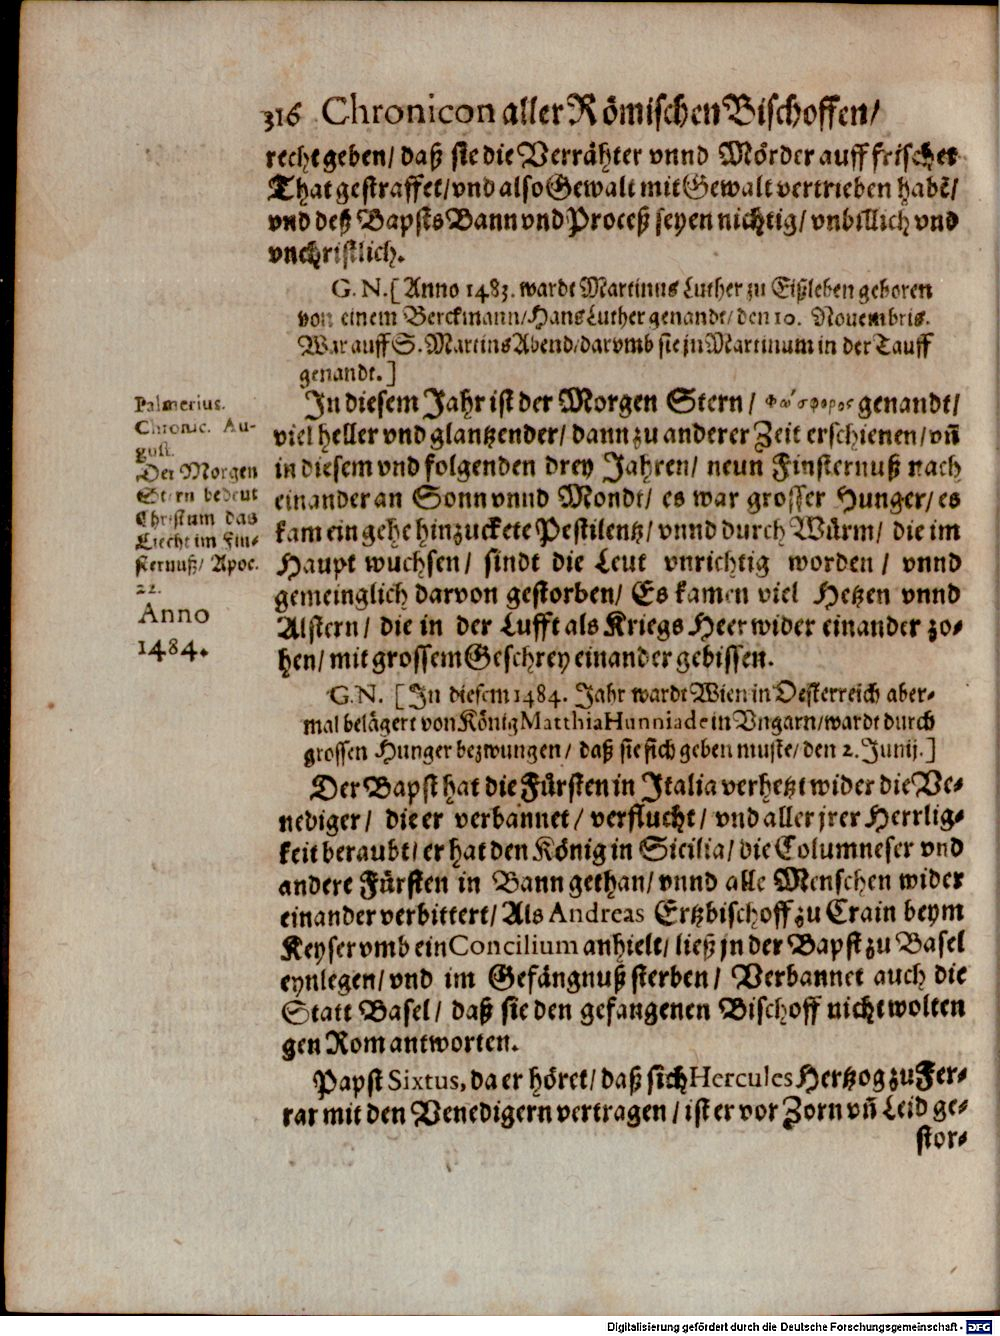 316 Chronicon aller Römischen Bischoffen/
recht geben/ daß sie die Verrähter vnnd Mörder auff frischer
That gestraffet/ vnd also Gewalt mit Gewalt vertrieben habē/
vnd deß Bapsts Bann vnd Proceß seyen nichtig/ vnbillich vnd
vnchristlich.
G. N. [Anno 1483. wardt Martinus Luther zu Eißleben geboren
von einem Berckmann/ Hans Luther genandt/ den 10. Nouembris.
War auff S. Martins Abend/ darvmb sie jn Martinum in der Tauff
genandt.]
Palmerius.
Chronic. Au-
gust.
Der Morgen
Stern bedeut
Christum das
Liecht im Fin-
sternuß/ Apoc.
22.
Anno
1484.
In diesem Jahr ist der Morgen Stern/ Φωσφορος genandt/
viel heller vnd glantzender/ dann zu anderer Zeit erschienen/ vñ
in diesem vnd folgenden drey Jahren/ neun Finsternuß nach
einander an Sonn vnnd Mondt/ es war grosser Hunger/ es
kam ein gehe hinzuckete Pestilentz/ vnnd durch Würm/ die im
Haupt wuchsen/ sindt die Leut vnrichtig worden/ vnnd
gemeinglich darvon gestorben/ Es kamen viel Hetzen vnnd
Alstern/ die in der Lufft als Kriegs Heer wider einander zo-
hen/ mit grossem Geschrey einander gebissen.
G. N. [In diesem 1484. Jahr wardt Wien in Oesterreich aber-
mal belägert von König Matthia Hunniade in Vngarn/ wardt durch
grossen Hunger bezwungen/ daß sie sich geben muste/ den 2. Junij.]
Der Bapst hat die Fürsten in Italia verhetzt wider die Ve-
nediger/ die er verbannet/ verflucht/ vnd aller jrer Herrlig-
keit beraubt/ er hat den König in Sicilia/ die Columneser vnd
andere Fürsten in Bann gethan/ vnnd alle Menschen wider
einander verbittert/ Als Andreas Ertzbischoff zu Crain beym
Keyser vmb ein Concilium anhielt/ ließ jn der Bapst zu Basel
eynlegen/ vnd im Gefängnuß sterben/ Verbannet auch die
Statt Basel/ daß sie den gefangenen Bischoff nicht wolten
gen Rom antworten.
Papst Sixtus, da er höret/ daß sich Hercules Hertzog zu Fer-
rar mit den Venedigern vertragen/ ist er vor Zorn vñ Leid ge-
stor-
Digitalisierung gefördert durch die Deutsche Forschungsgemeinschaft - DFG